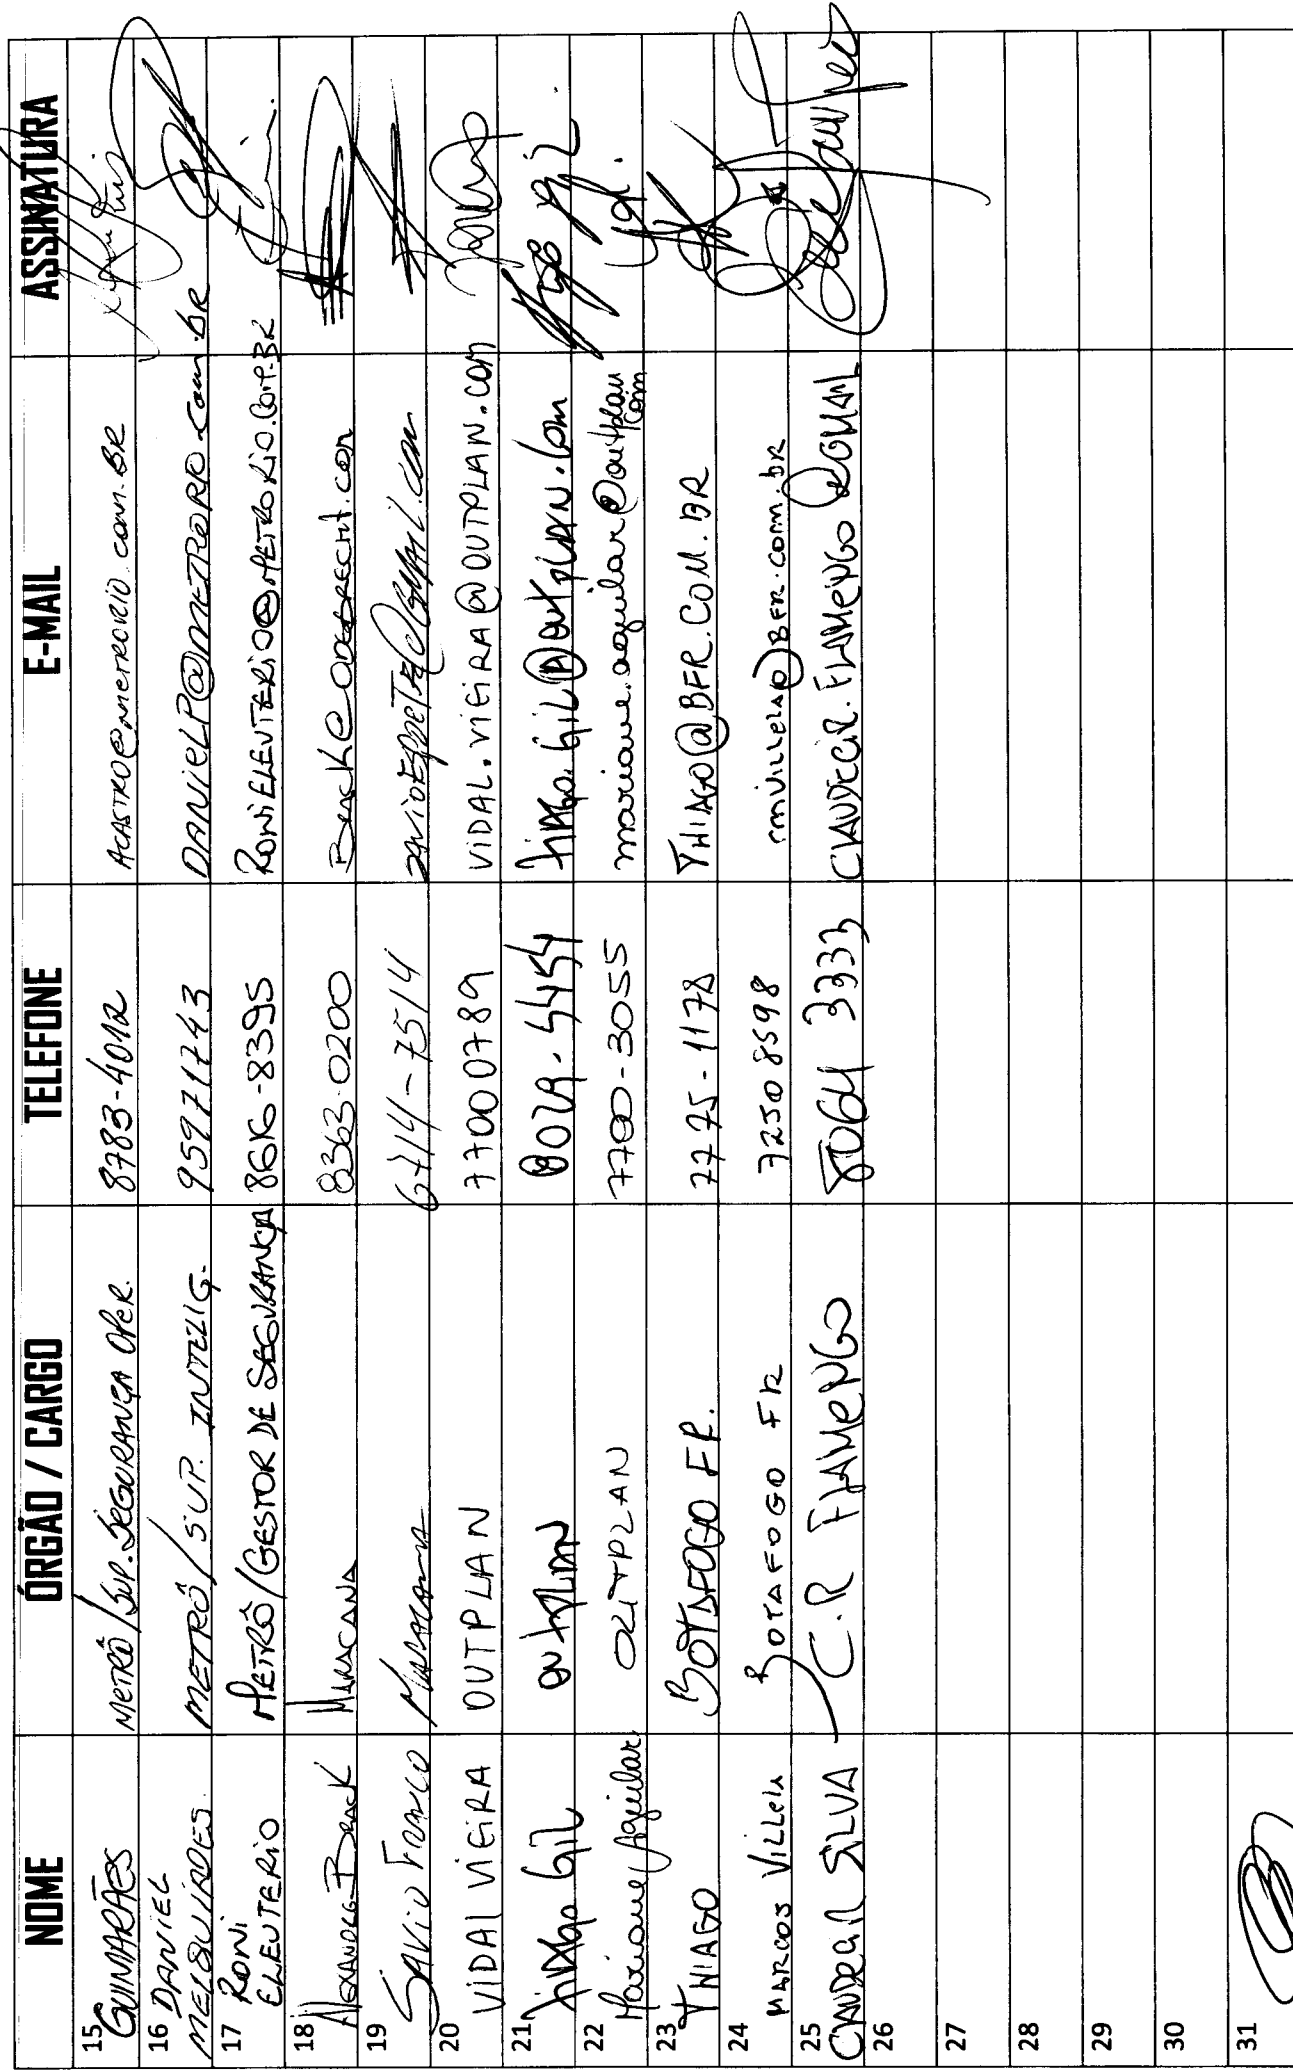 NOME ÓRGÃO / CARGO TELEFONE E-MAIL ASSINATURA
15 GUIMARÃES METRÔ/SUP. SEGURANÇA OPER. 8783-4012 ACASTRO@METRORIO.COM.BR
16 DANIEL MELQUIADES METRÔ/SUP. INTELIG. 95971743 DANIELP@METRORIO.COM.BR
17 RONI ELEUTERIO METRÔ/GESTOR DE SEGURANÇA 8616-8395 RONIELEUTERIO@METRORIO.COM.BR
18 ALEXANDRE MARACANA 8363-0200
19 SAVIO FRANCO MARACANA 6714-7514
20 VIDAL VIEIRA OUTPLAN 77000789 VIDAL.VIEIRA@OUTPLAN.COM
21 Gil outplan
22 Mariane Aguilar OUTPLAN 7700-3055 mariane.aguilar@outplan.com
23 THIAGO BOTAFOGO FR. 7775-1178 THIAGO@BFR.COM.BR
24 MARCOS VILLELA BOTAFOGO FR 72508598
25 CLAUDECIR SILVA C.R FLAMENGO 8064 3333
26
27
28
29
30
31